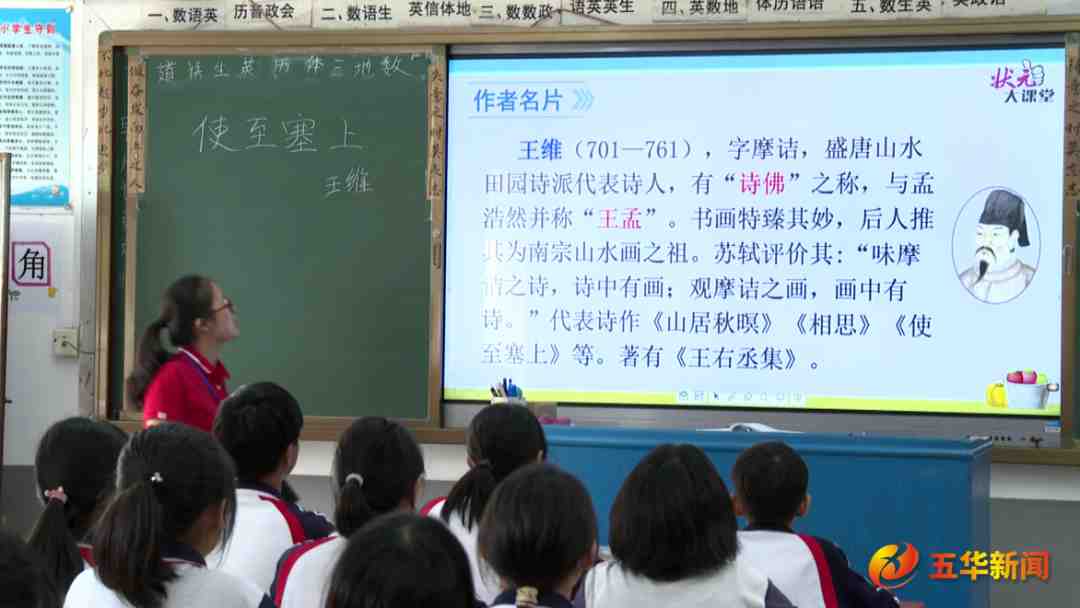 一、数语英 历音政会 二、数语生 英信体地 三、数数政 语英英生 四、英数地 体历语语 五、数生英
小学生守则
道 语 生 英 历 体 三 地 数
使至塞上
王维
角
作者名片
状元大课堂
王维（701—761），字摩诘，盛唐山水
田园诗派代表诗人，有“诗佛”之称，与孟
浩然并称“王孟”。书画特臻其妙，后人推
其为南宗山水画之祖。苏轼评价其：“味摩
诘之诗，诗中有画；观摩诘之画，画中有
诗。”代表诗作《山居秋暝》《相思》《使
至塞上》等。著有《王右丞集》。
五华新闻